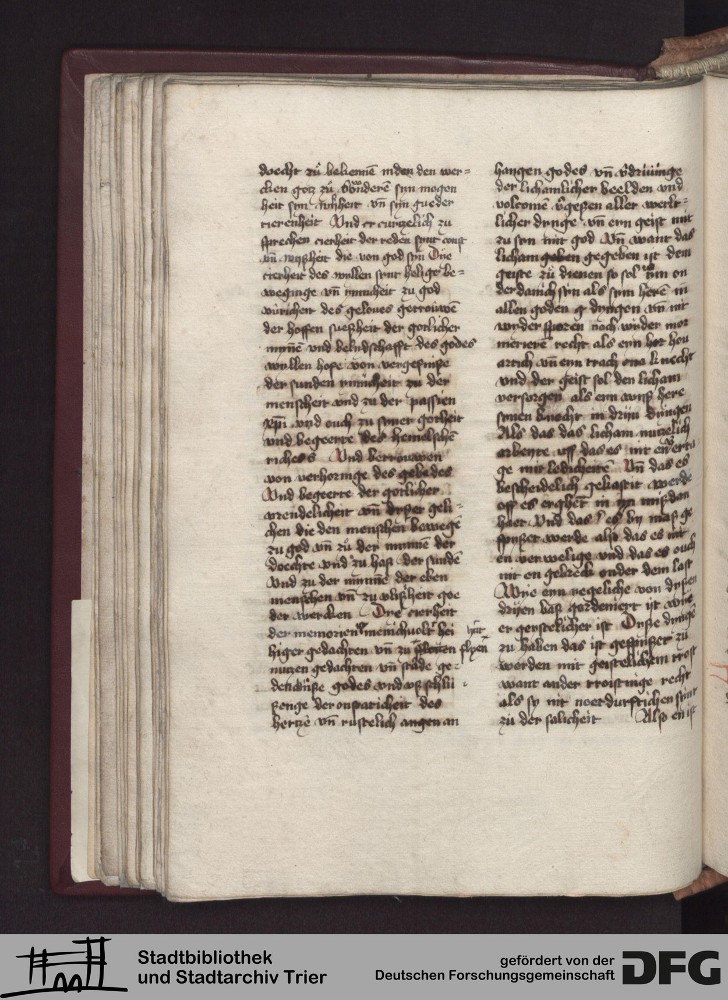 doecht zů bekennē in den den wer=
cken gotz zů
heit syn wyßheit vn̄ syn gueder
tierenheit Vnd er curtzelich zu
sprechen cierheit der reden synt const
vn̄ wyßheit die von god syn Die
cierheit des wyllen synt helige be=
weginge vn̄ ynnicheit zu god
des geloues getrouwē
der hoffen sueßheit der gotlicher
mynnē vnd des godes
wyllen hope von vergefniße
der sunden ynnicheit zu der
menscheit vnd zu der passien
xp̄i vnd ouch zu syner gotheit
vnd begeerte des hemelschē
riches Vnd betrouwen
von verhoringe des gebedes
Vnd begeerte der gotlicher
vrendelicheit vn̄ dyser geli=
chen die den menschen bewegē
zu god vn̄ zů der mynnē der
doechte vnd zu haß der sunden
vnd zu der mynnē der eben
menschen vn̄ zu vlißheit goe
der wercken Die cierheit
der memorien hei
higer gedachten vn̄ zu flyen
nutzen gedachten vn̄ stade ge=
denckniße godes vnd vß schlů
ßenge der onstaticheit des
hertzē vn̄ rustelich angen an
hangen godes vn̄
der lichamlicher beelden vnd
volcomē v̄geßen aller werlt=
licher dinge vn̄ eyn geist mit
zu syn mit god Vn̄ want das
licham geben gegeben ist dem
geiste zů dienen so sol ym on
derdanich syn als sym herē in
allen goden dingen vn̄ nit
wyder sporen noch wyder mor
merierē recht als eyn
vn̄ eyn trach knecht
vnd der geist sol den licham
versorgen als eyn wyß here
synen knecht in dryn dingen
Als das das licham nutzelich
arbeyte vff das es nit
ge mit ledicheite Vn̄ das es
bescheidelich gekastiit werde
off es ergheet in yn mißdan
haet Vnd das es by maß ge
spyßet werde also das es nit
en verweluge vnd das es ouch
nit en gebreck onder dem last
Wie eyn yegeliche von dysen
dryen baß gordeniert ist wie
er geistelicher ist Dyße dinge
zu haben das ist gespyßet zu
werden mit geistelichem trost
want ander troistinge recht
als sy nit noetdurftichen synt
zů der salicheit Also en ist
Stadtbibliothek
und Stadtarchiv Trier
gefördert von der
Deutschen Forschungsgemeinschaft
DFG